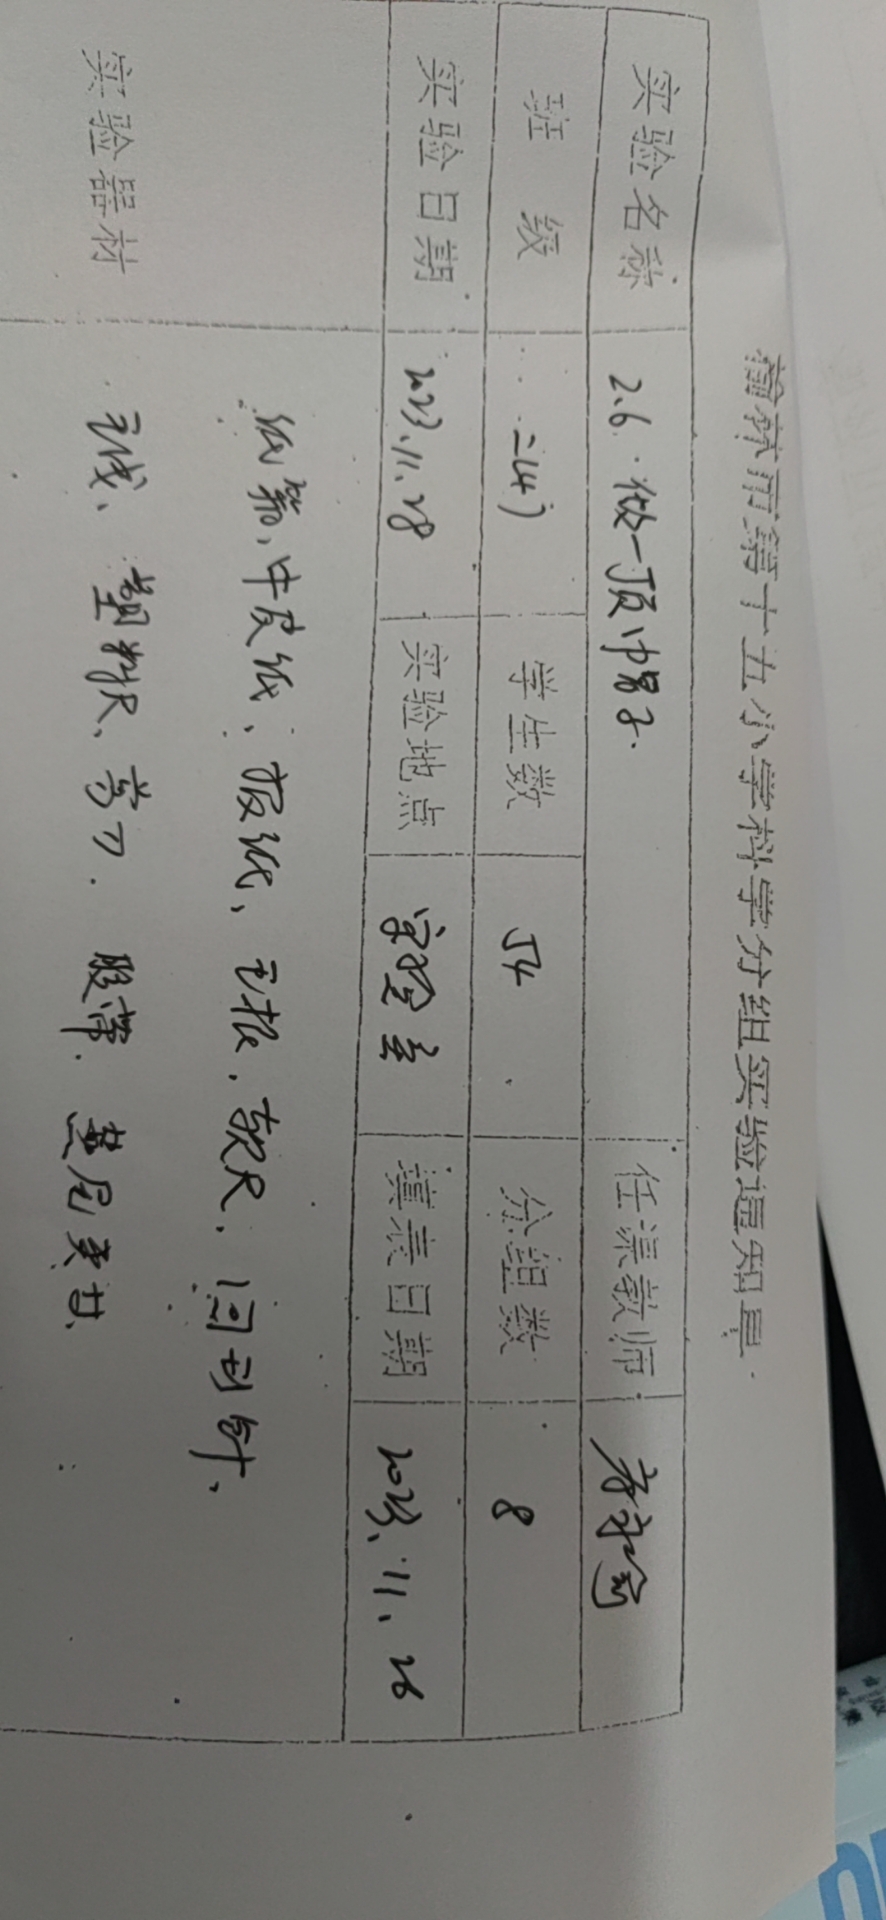 榆林市第十五小学科学分组实验通知单
实验名称 2.6.做一顶帽子. 任课教师
班 级 二(4) 学生数 54 分组数 8
实验日期 2023.11.28 实验地点 实验室 填表日期 2023.11.26
实验器材 纸箱、牛皮纸、报纸、毛根、软尺、回形针、
毛线、塑料尺、剪刀. 胶带.